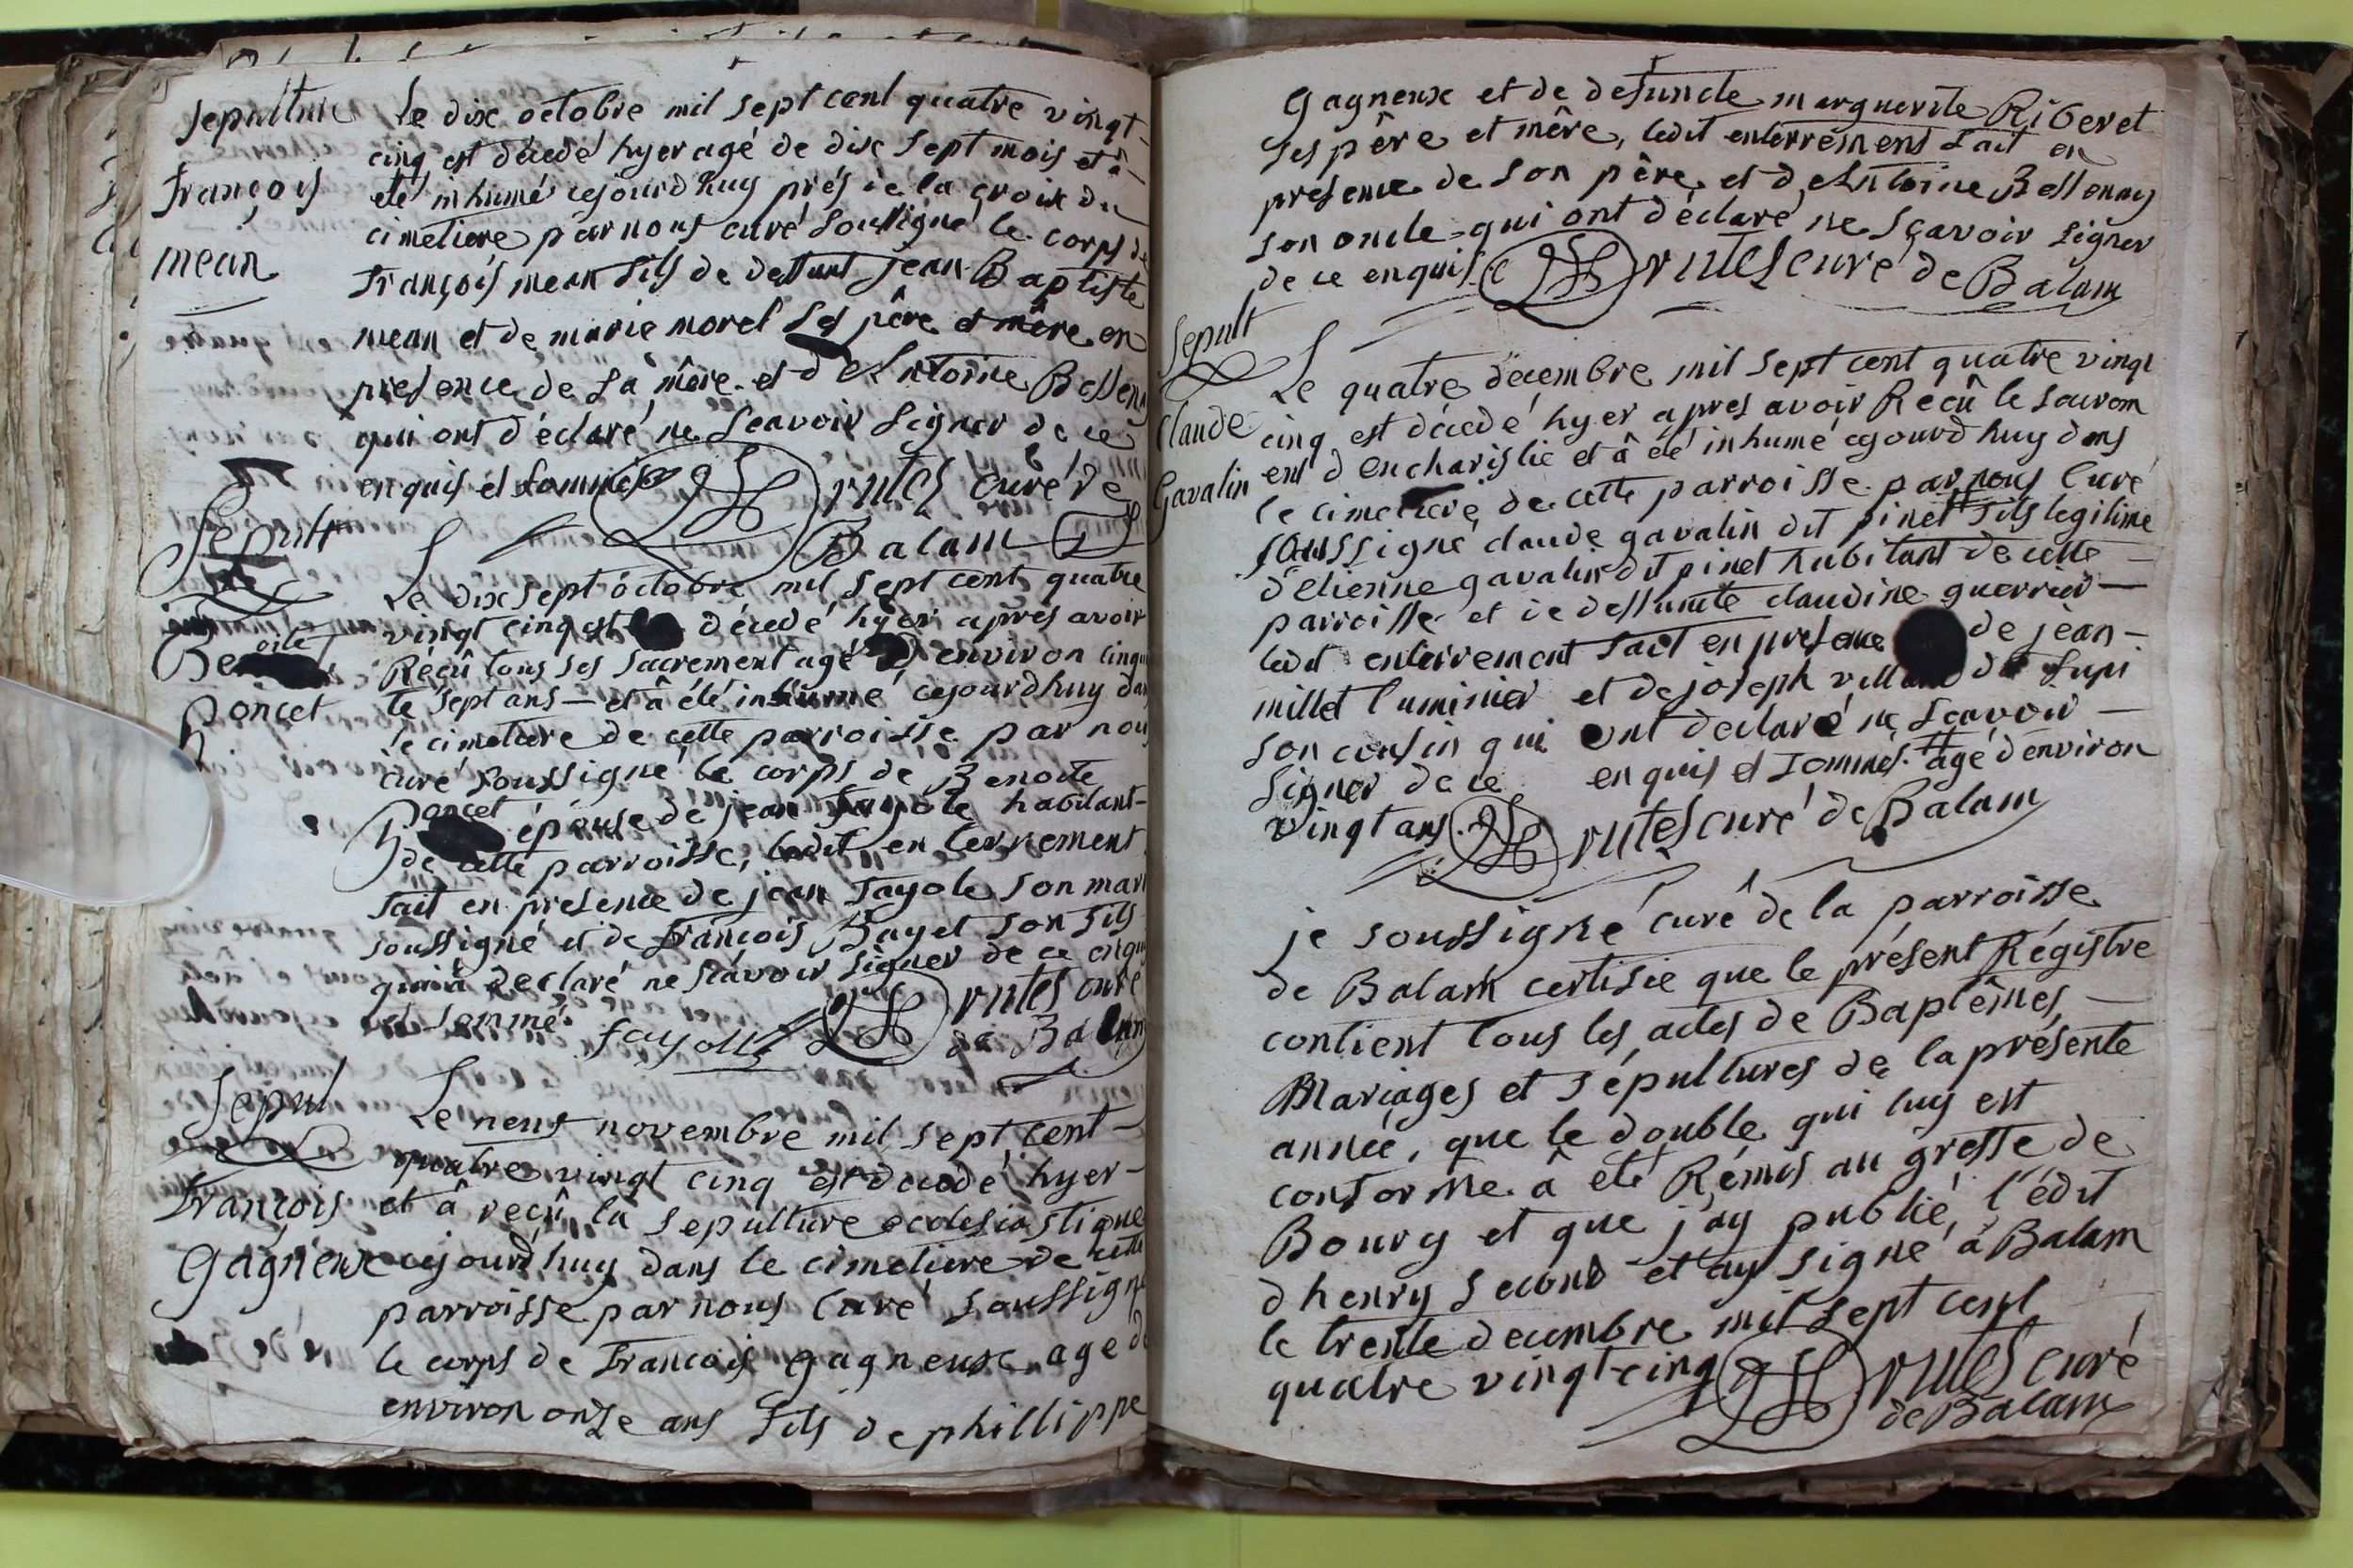 Sepulture
françois
mean
Le dix octobre mil sept cent quatre vingt-
cinq est décédé hyer agé de dix sept mois et à
eté inhumé cejourd huy prés de la croix du
cimetiere par nous curé soussigné le corps de
françois mean fils de deffunt jean Baptiste
mean et de marie morel ses père et mère en
presence de sa mère et d'Antoine
qui ont déclaré ne scavoir signer de ce
enquis et sommés rutes curé de
Balam
Sepult
Benoite
poncet
Le dix sept octobre mil sept cent quatre
vingt cinq est décédé hyer après avoir
Réçû tous ses sacrement agé d environ cinqu
te sept ans — et à été inhumé cejourdhuy dans
le cimetiere de cette parroisse par nous
curé soussigné le corps de Benoite
poncet épouse de jean fayole habitant-
de cette parroisse, ledit enterrement
fait en presence de jean fayole son mari
soussigné et de françois Bayet son fils
qui à declaré ne scavoir signer de ce enqui
et sommé. fayolle rutes curé
de Balam
Sepul
françois
Gagneux
Le neuf novembre mil sept cent-
quatre vingt cinq est decedé hyer-
et à reçû la sepulture ecclesiastique
cejourd huy dans le cimetiere de cette
parroisse par nous Curé soussigné
le corps de francois gagneux age de
environ onze ans fils de phillippe
Gagneux et de defuncte marguerite Riberet
ses père et mère, ledit enterrement fait en
presence de son père et d'Antoine Bessonay
son oncle qui ont déclaré ne sçavoir signer
de ce enquis rutes curé de Balam
Sepult
Claude
Gavalin
Le quatre decembre mil sept cent quatre vingt
cinq est décedé hyer apres avoir Reçû le sacrem
ent d'encharistie et à été inhumé cejourd huy dans
le cimetiere de cette parroisse par nous Curé
soussigné claude gavalin dit pinet # fils legitime
d'etienne gavalin dit pinet habitant de cette —
parroisse et de deffuncte claudine guerrier —
ledit enterrement fait en presence de jean —
millet luminier et de joseph de
son cousin qui ont declaré ne scavoir —
signer de ce enquis et sommés. # agé d'environ
vingt ans. rutes curé de Balam
je soussigné curé de la parroisse
de Balam certifie que le présent Régistre
contient tous les actes de Baptêmes, —
Mariages et sépultures de la présente
année, que le double qui luy est
conforme à été Rémis au greffe de
Bourg et que j'ay publié, l'édit
d henry second et ay signé à Balam
le trente decembre mil sept cent
quatre vingt-cinq rutes curé
de Balam